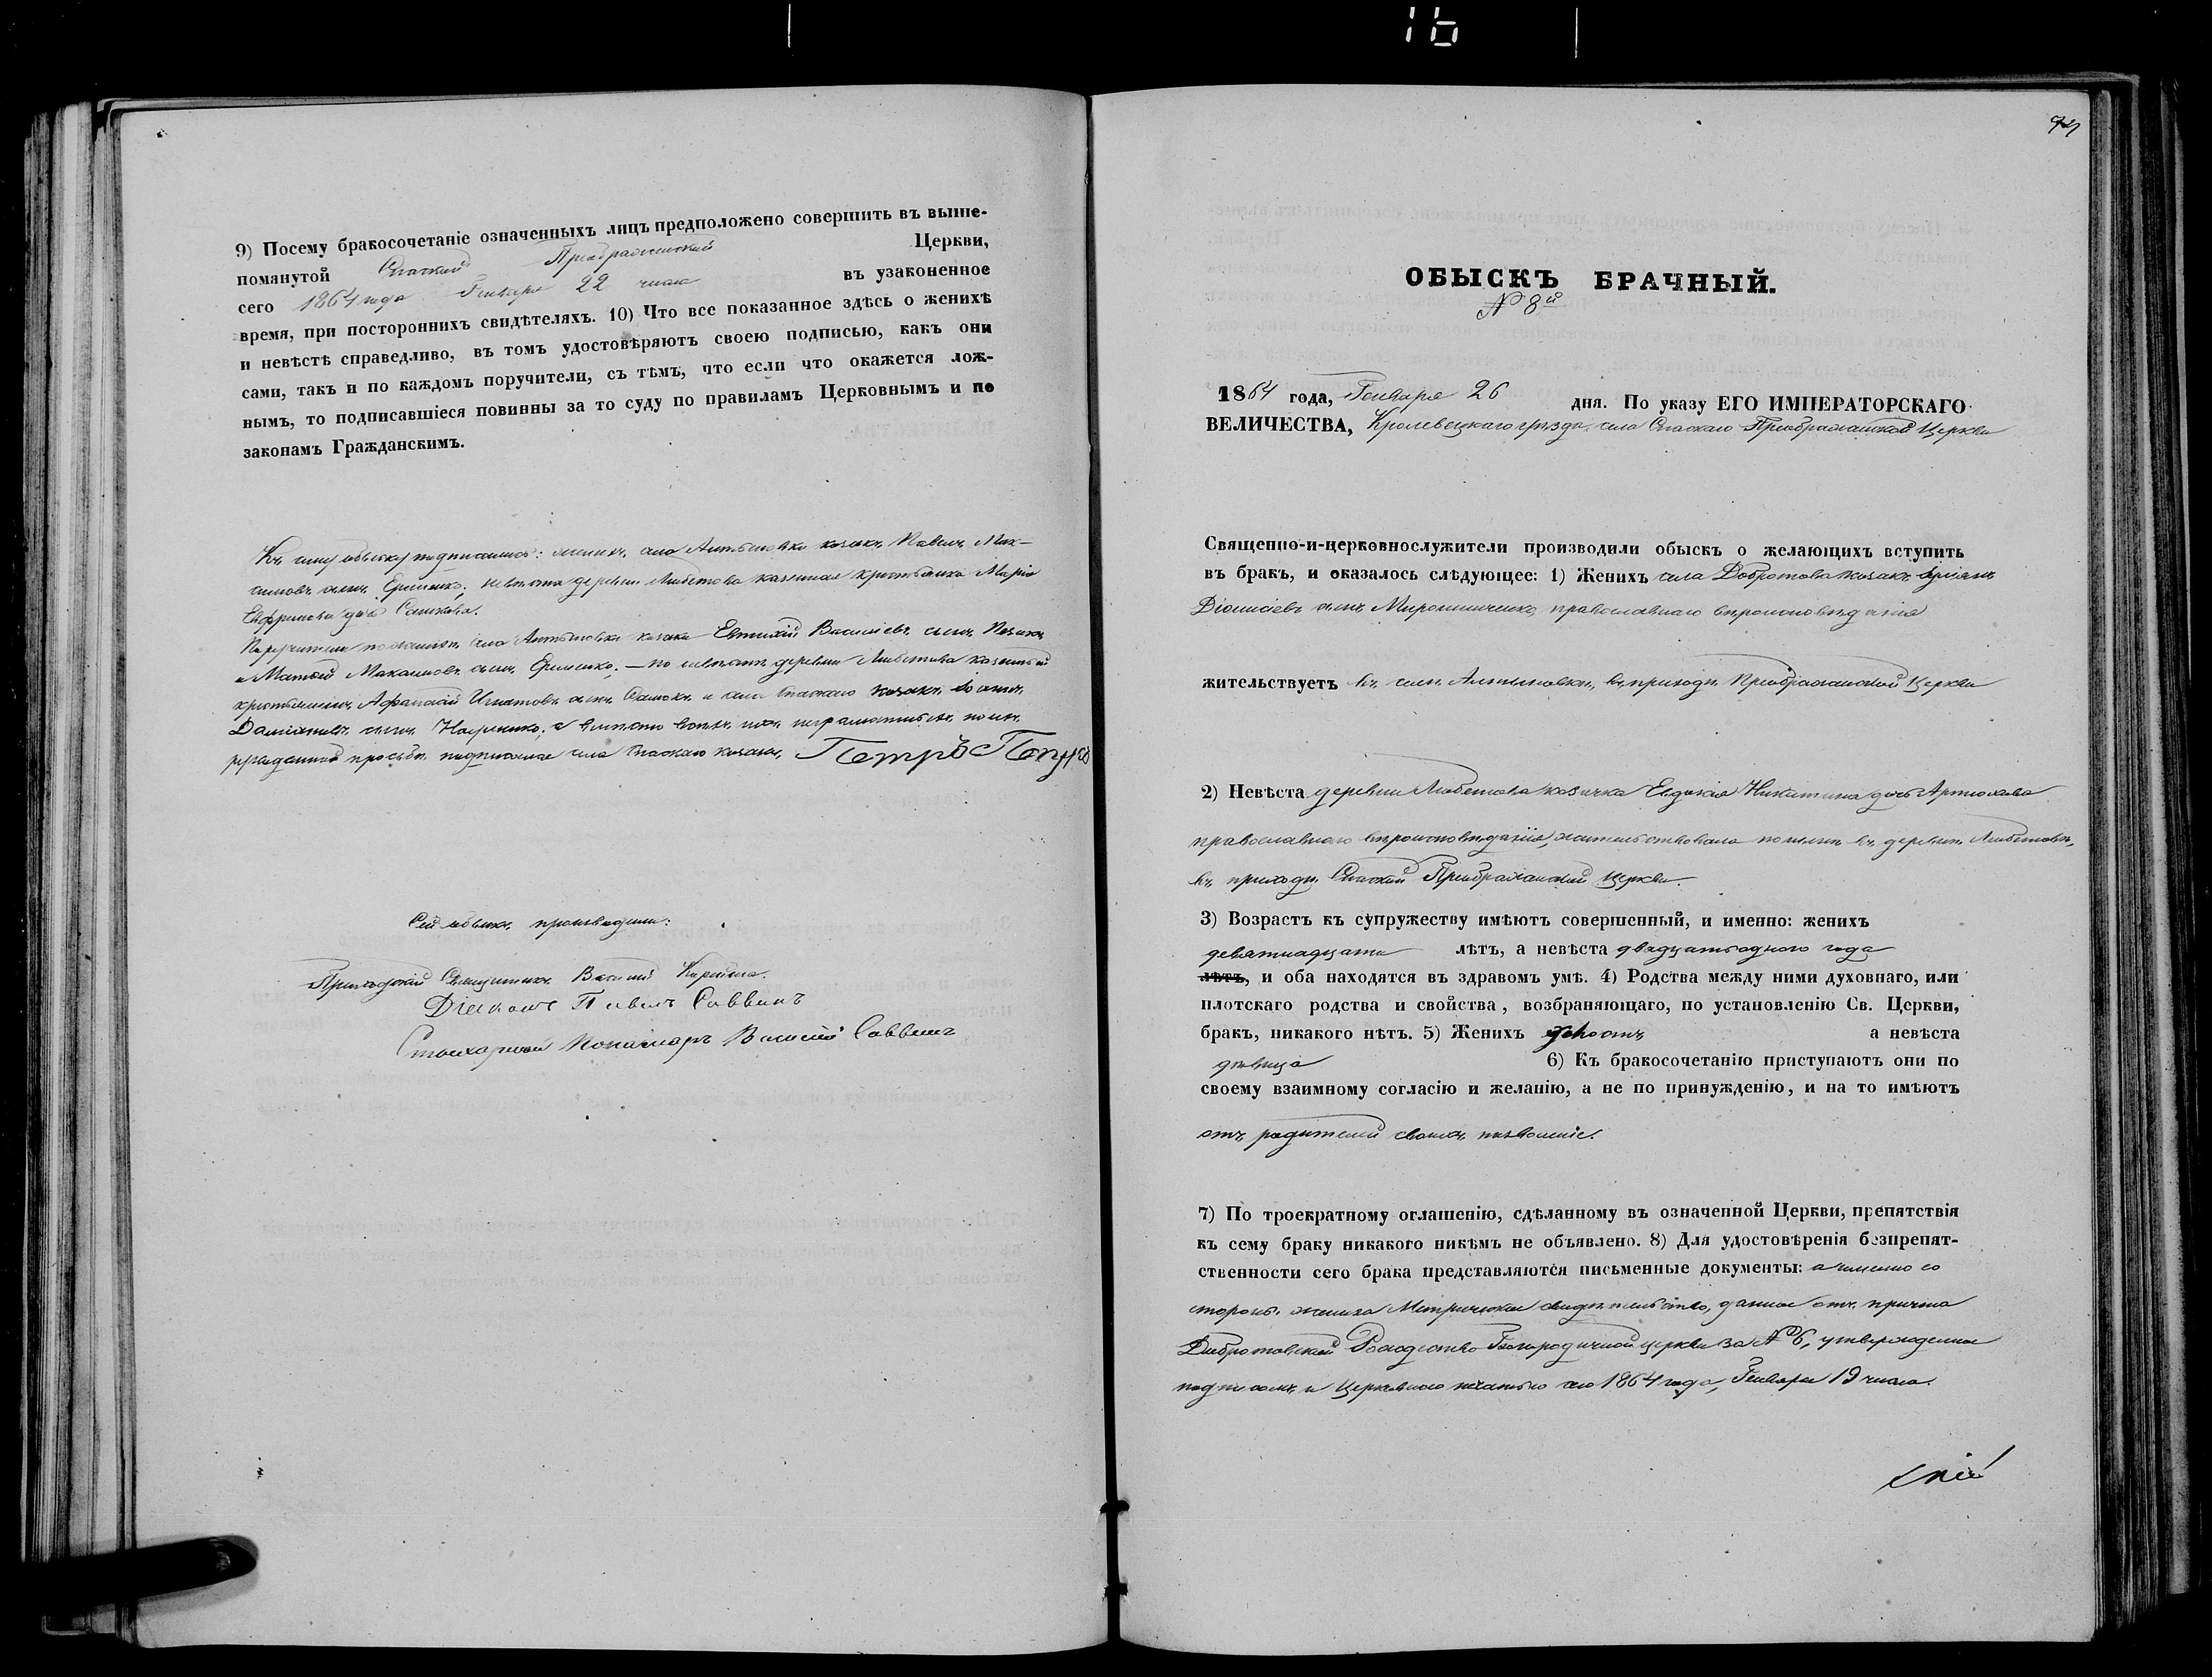 16
9) Посему бракосочетаніе означенныхъ лицъ предположено совершить въ выше-
помянутой Спаской Преображенской Церкви,
сего 1864 года Генваря 22 числа въ узаконенное
время, при постороннихъ свидѣтеляхъ. 10) Что все показанное здѣсь о женихѣ
и невѣстѣ справедливо, въ томъ удостовѣряютъ своею подписью, какъ они
сами, такъ и по каждомъ поручители, съ тѣмъ, что если что окажется лож-
нымъ, то подписавшіеся повинны за то суду по правиламъ Церковнымъ и по
законамъ Гражданскимъ.
Къ сему обыску подписались: женихъ, села козакъ Павелъ Мак-
симовъ сынъ Еременко; невѣста деревни Любитова казенная крестьянка Марія
дочь
Поручители по женихѣ села козаки Евтихій Василіевъ сынъ
и Матвѣй Максимовъ сынъ Еременко; — по невѣстѣ деревни Любитова казенный
крестьянинъ Афанасій Игнатовъ сынъ и села Спаскаго козакъ
сынъ а вмѣсто всѣхъ ихъ неграмотныхъ по ихъ
просьбѣ подписался села Спаскаго козакъ, Петръ
Сей обыскъ производили:
Приходскій Священникъ Василій
Діаконъ Павелъ Саввинъ
Стихарный Пономарь Василій Саввинъ
ОБЫСКЪ БРАЧНЫЙ.
№ 8й
1864 года, Генваря 26 дня. По указу ЕГО ИМПЕРАТОРСКАГО
ВЕЛИЧЕСТВА, Кролевецкаго уѣзда села Спаскаго Преображенской Церкви
Священно-и-церковнослужители производили обыскъ о желающихъ вступить
въ бракъ, и оказалось слѣдующее: 1) Женихъ села Добротова козакъ
Діонисіевъ сынъ Мирошниченко, православнаго вѣроисповѣданія
жительствуетъ въ селѣ въ приходѣ Преображенской Церкви
2) Невѣста деревни Любитова козачка Евдокія Никитина дочь Артюхова
православнаго вѣроисповѣданія, жительствовала понынѣ въ деревнѣ Любитовѣ,
въ приходѣ Спаской Преображенской Церкви.
3) Возрастъ къ супружеству имѣютъ совершенный, и именно: женихъ
девятнадцати лѣтъ, а невѣста двадцать одного года
лѣтъ, и оба находятся въ здравомъ умѣ. 4) Родства между ними духовнаго, или
плотскаго родства и свойства, возбраняющаго, по установленію Св. Церкви,
бракъ, никакого нѣтъ. 5) Женихъ холостъ а невѣста
дѣвица 6) Къ бракосочетанію приступаютъ они по
своему взаимному согласію и желанію, а не по принужденію, и на то имѣютъ
отъ родителей своихъ позволеніе.
7) По троекратному оглашенію, сдѣланному въ означенной Церкви, препятствія
къ сему браку никакого никѣмъ не объявлено. 8) Для удостовѣренія безпрепят-
ственности сего брака представляются письменные документы: а именно со
стороны жениха Метрическое свидѣтельство, данное отъ причта
Добротовской Рождество-Богородичной церкви за № 6, утвержденное
подписомъ и Церковною печатью сего 1864 года, Генваря 19 числа.